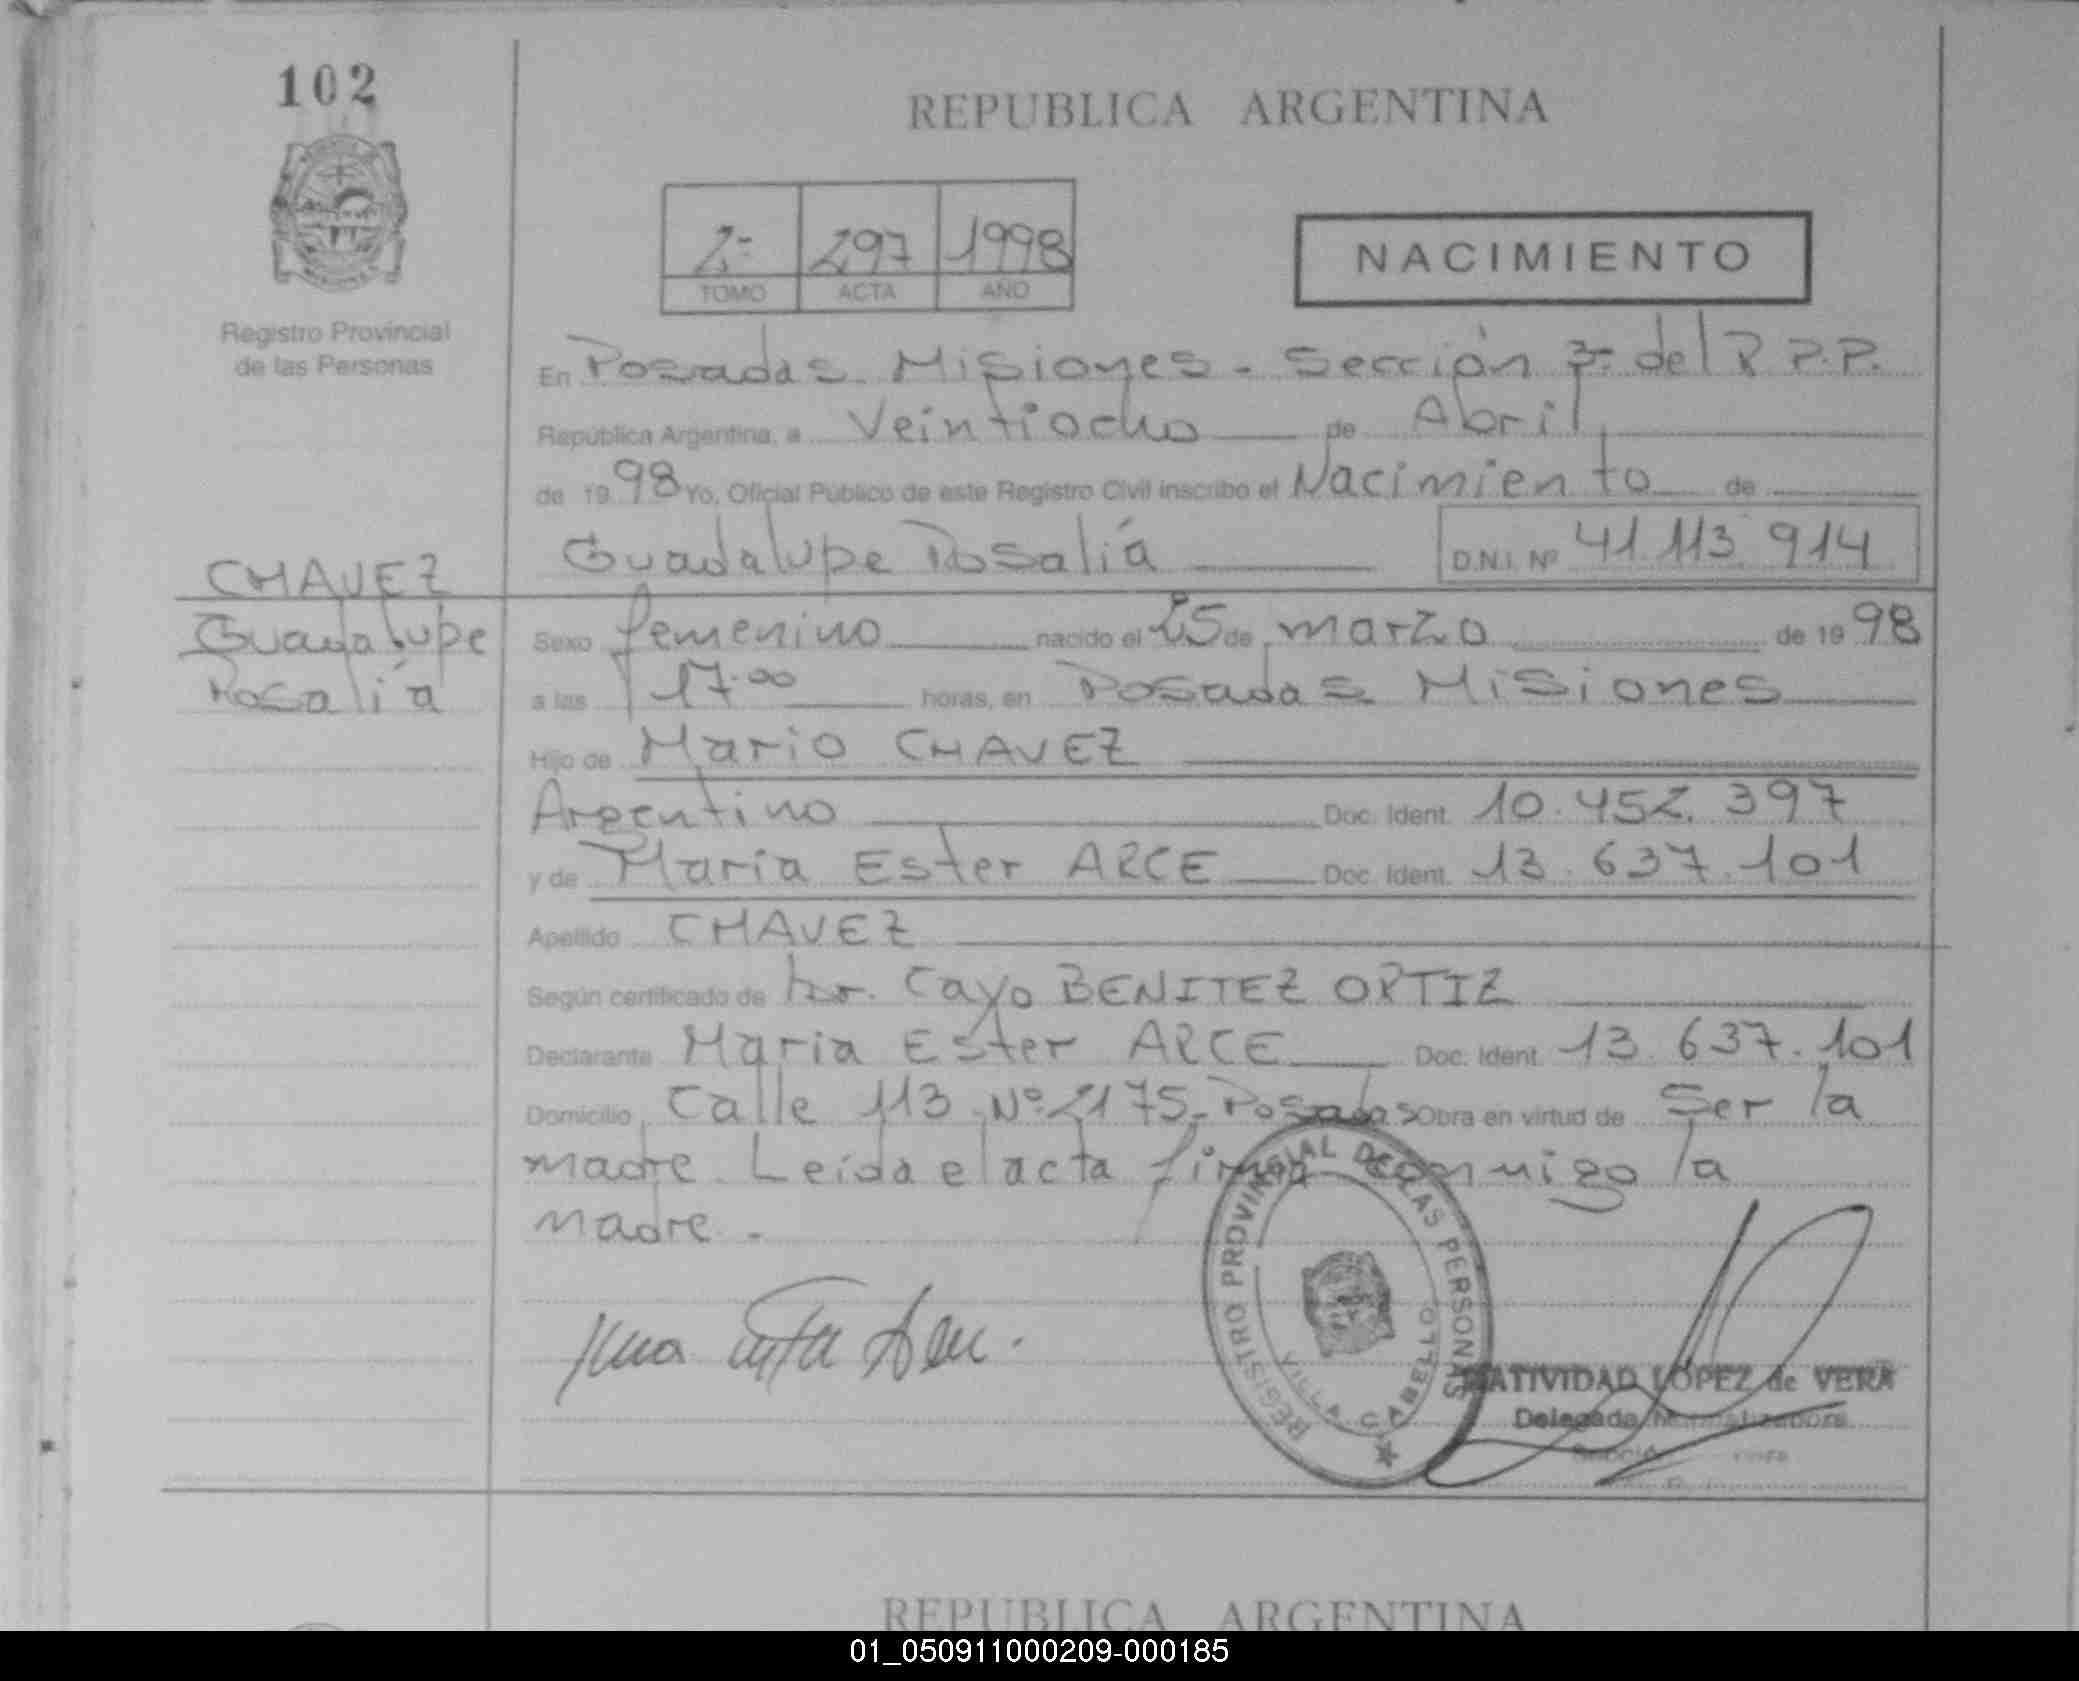 102
REPUBLICA ARGENTINA
2- 297 1998
TOMO ACTA AÑO
NACIMIENTO
Registro Provincial
de las Personas
En Posadas Misiones - Sección 3- del R.P.P.
República Argentina, a Veintiocho de Abril
de 1998 Yo, Oficial Público de este Registro Civil inscribo el Nacimiento de
Guadalupe Rosalía D.N.I. Nº 41.113.914
CHAVEZ
Guadalupe
Rosalía
Sexo femenino nacido el 25 de marzo de 1998
a las 17.00 horas, en Posadas Misiones
Hijo de Mario CHAVEZ
Argentino Doc. Ident. 10.452.397
y de Maria Ester ARCE Doc. Ident. 13.637.101
Apellido CHAVEZ
Según certificado de Dr. Cayo BENITEZ ORTIZ
Declarante Maria Ester ARCE Doc. Ident. 13.637.101
Domicilio Calle 113 Nº 2175- Posadas Obra en virtud de Ser la
madre. Leída el acta firma conmigo la
madre.-
REGISTRO PROVINCIAL DE LAS PERSONAS
VILLA CABELLO
NATIVIDAD LOPEZ de VERA
Delegada Normalizadora
REPUBLICA ARGENTINA
01_050911000209-000185